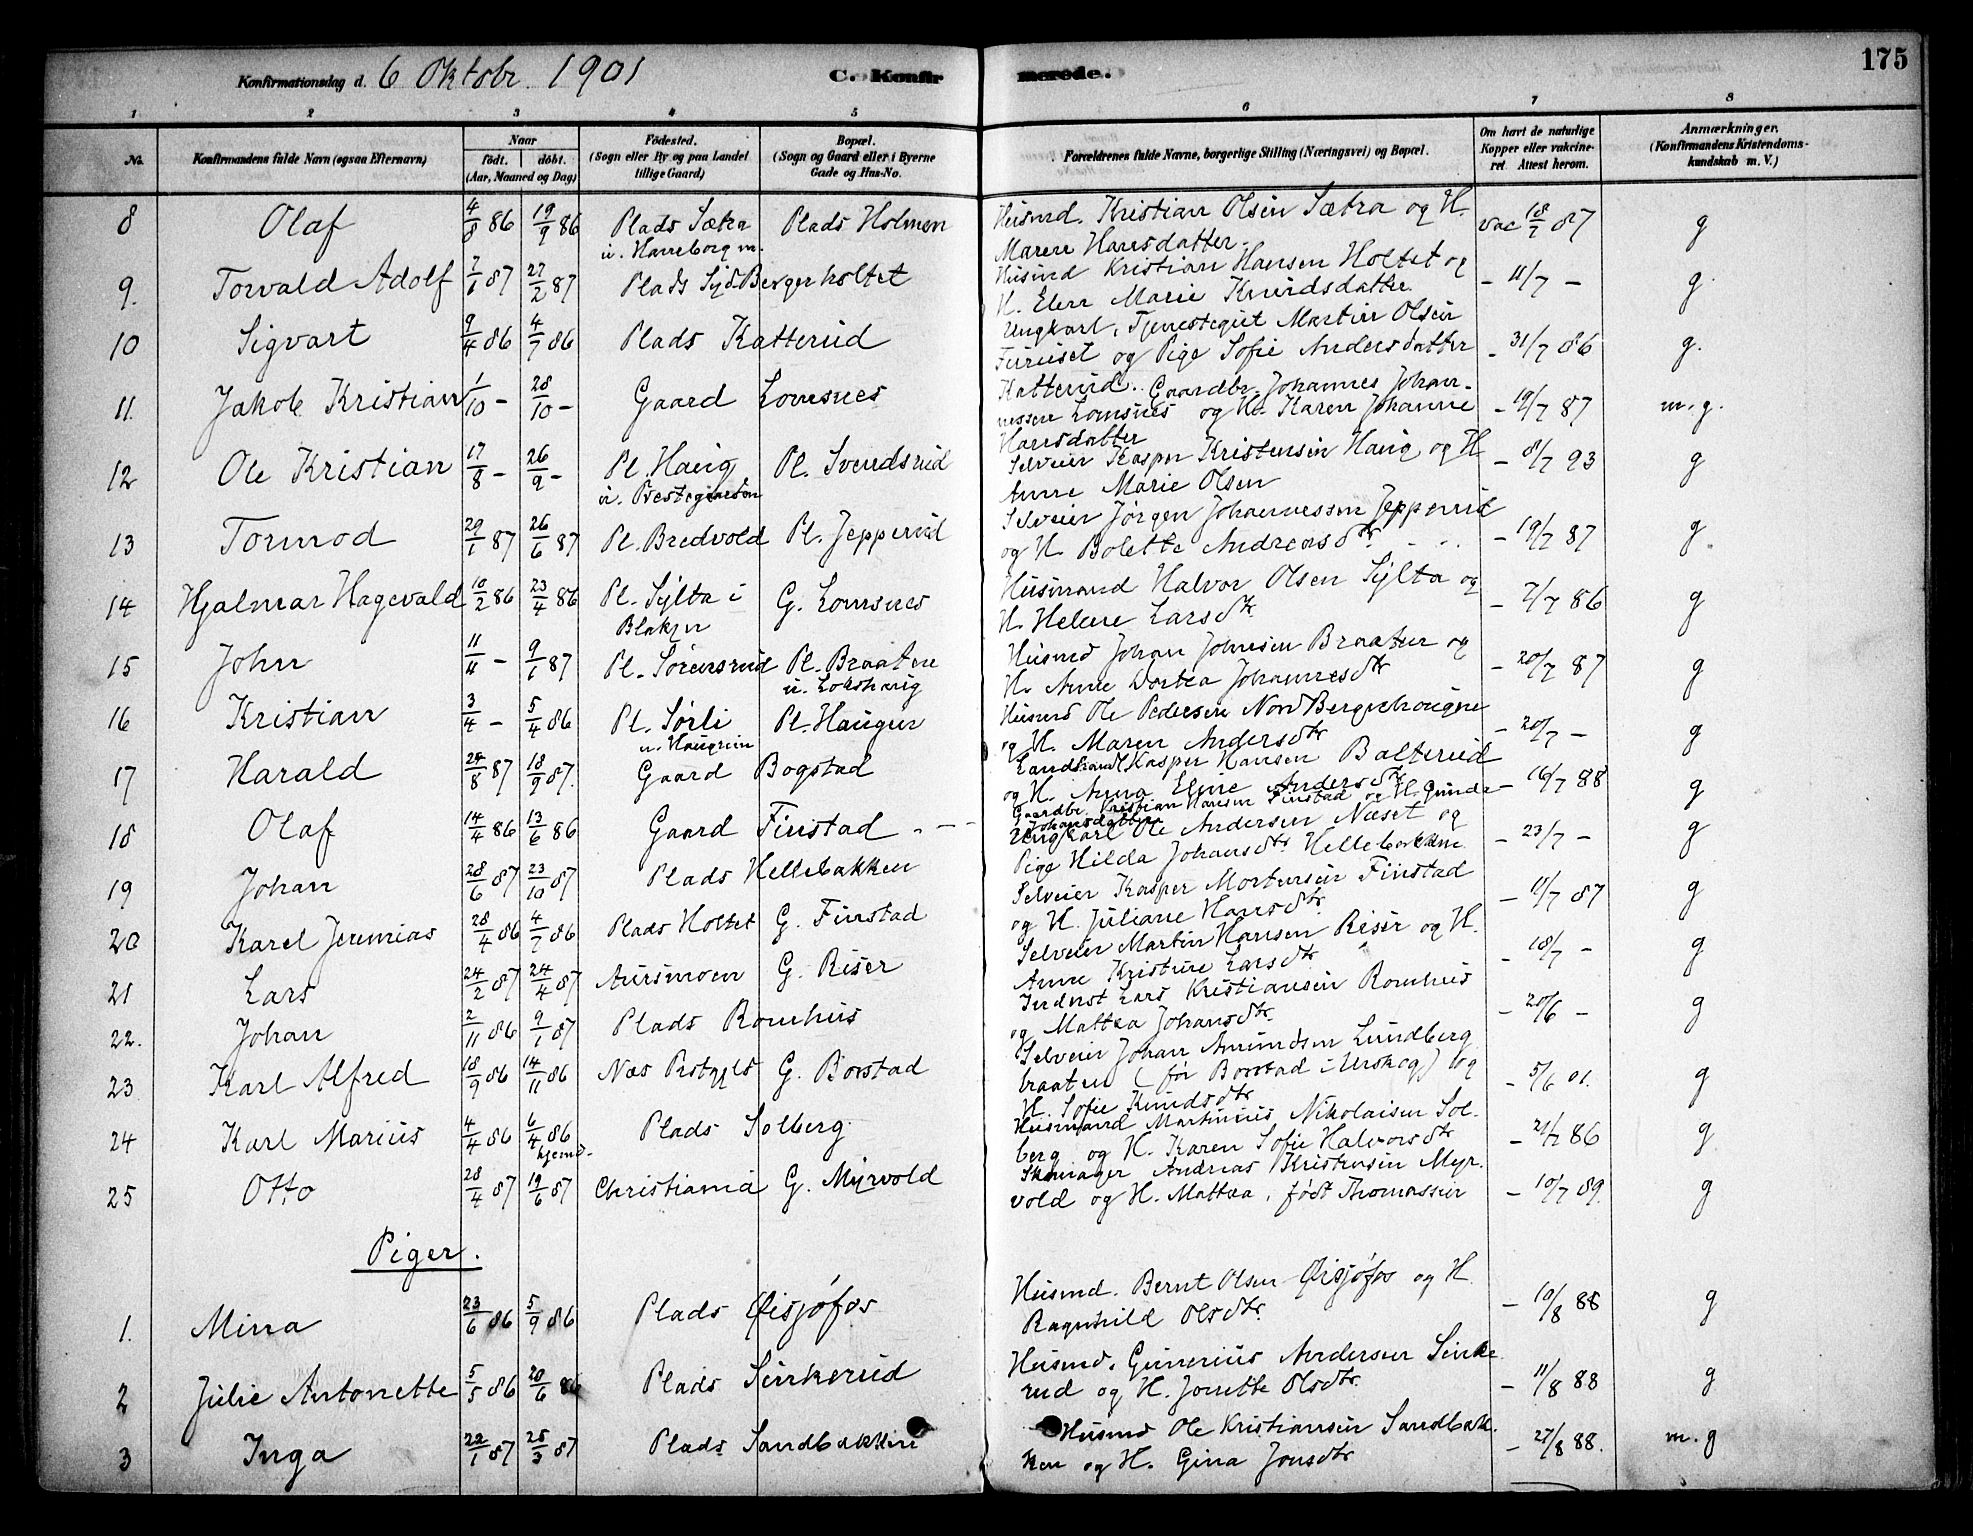 175
Konfirmationsdag d. 6 Oktobr. 1901 C. Konfirmerede.
1 2 3 4 5 6 7 8
No. Konfirmandens fulde Navn (ogsaa Efternavn) Naar født. døbt. (Aar, Maaned og Dag) Fødested. (Sogn eller By og paa Landet tillige Gaard) Bopæl. (Sogn og Gaard eller i Byerne Gade og Hus-No. Forældrenes fulde Navne, borgerlige Stilling (Næringsvei) og Bopæl. Om havt de naturlige Kopper eller vakcineret Attest herom. Anmærkninger. (Konfirmandens Kristendomskundskab m. V.)
8 Olaf 4/8 86 19/9 86 Plads Sætra u. Haneborg m. Plads Holmen Husmd. Kristian Olsen Sætra og H. Maren Hansdatter. vac 18/7 87 g
9. Torvald Adolf 7/1 87 27/2 87 Plads Syd Bergerholtet Husmd Kristian Hansen Holtet og H. Elen Marie Knudsdatter. - 11/7 - g.
10 Sigvart 9/4 86 4/7 86 Plads Katterud Ungkarl, Tjenestegut Martin Olsen Furuset og Pige Sofie Andersdatter Katterud. - 31/7 86 g.
11. Jakob Kristian 1/10 - 28/10 - Gaard Lomsnes Gaardbr. Johannes Johannessen Lomsnes og H. Karen Johanne Hansdatter - 19/7 87 m. g.
12 Ole Kristian 17/8 - 26/9 - Pl. Haug u. Prestegaarden Pl. Svendsrud Selveier Kasper Kristensen Haug og H Anne Marie Olsen - 8/7 93 g
13 Tormod 29/1 87 26/6 87 Pl. Bredvold Pl. Jepperud Selveier Jørgen Johannessen Jepperud og H. Bolette Andreasdtr. - 19/7 87 g.
14 Hjalmar Hagevald 10/2 86 23/4 86 Pl. Sylta i Blakjer G. Lomsnes Husmand Halvor Olsen Sylta og H. Helene Larsdtr - 7/7 86 g
15 John 11/11 - 9/1 87 Pl. Sørensrud Pl. Braaten u. Lokshaug Husmd Johan Johnsen Braaten og H. Anne Dortea Johannesdtr - 20/7 87 g
16 Kristian 3/4 - 5/4 86 Pl. Sørli u. Haugrim Pl. Haugen Husmd Ole Pedersen Nord Bergrehaugen og H. Maren Andersdtr - 20/7 - g
17 Harald 24/8 87 18/9 87. Gaard Bogstad Landhandl Kasper Hansen Balterud og H. Anna Eline Andersdtr - 16/7 88 g
18 Olaf 14/4 86 13/6 86 Gaard Finstad - - - Gaardbr. Kristian Hansen Finstad og H. Gunda Johansdatter - 23/7 - g
19 Johan 28/6 87 23/10 87 Plads Hellebakken Ungkarl Ole Andersen Næset og Pige Hilda Johansdtr Hellebakken - 11/7 87 g
20 Karel Jeremias 28/4 86 4/7 86 Plads Holtet G. Finstad Selveier Kasper Mortensen Finstad og H. Juliane Hansdtr. - 18/7 - g
21 Lars 24/2 87 24/4 87 Aursmoen G. Riser Selveier Martin Hansen Riser og H. Anne Kristine Larsdtr - 20/6 - g
22. Johan 2/11 86 9/1 87 Plads Romhus Inderst Lars Kristiansen Romhus og Mattea Johansdtr.
23 Karl Alfred 18/9 86 14/11 86 Næs Prstgjld G. Borstad Selveier Johan Amundsen Lundbergbraaten (før Borstad i Urskog) og H. Sofie Knudsdtr - 5/6 01. g
24 Karl Marius 4/4 86 6/4 86 hjemd. Plads Solberg Husmand Martinius Nikolaisen Solberg og H. Karen Sofie Halvorsdtr - 21/7 86 g
25 Otto 28/4 87 19/6 87 Christiania G. Myrvold Skomager Andreas Kristensen Myrvold og H. Mattea, født Thomassen - 10/7 89. g
Piger.
1. Mina 23/6 86 5/9 86 Plads Øisjøfos Husmd. Bernt Olsen Øisjøfos og H Ragnhild Olsdtr. - 10/8 88 g
2 Julie Antonette 5/5 86 20/6 86 Plads Sinkerud Husmd. Gunerius Andersen Sinkerud og H. Jonette Olsdtr. - 11/8 88 g
3 Inga 22/1 87 25/3 87 Plads Sandbakken Husmd Ole Kristiansen Sandbakken og H. Gina Jonsdtr - 27/8 88. m. g